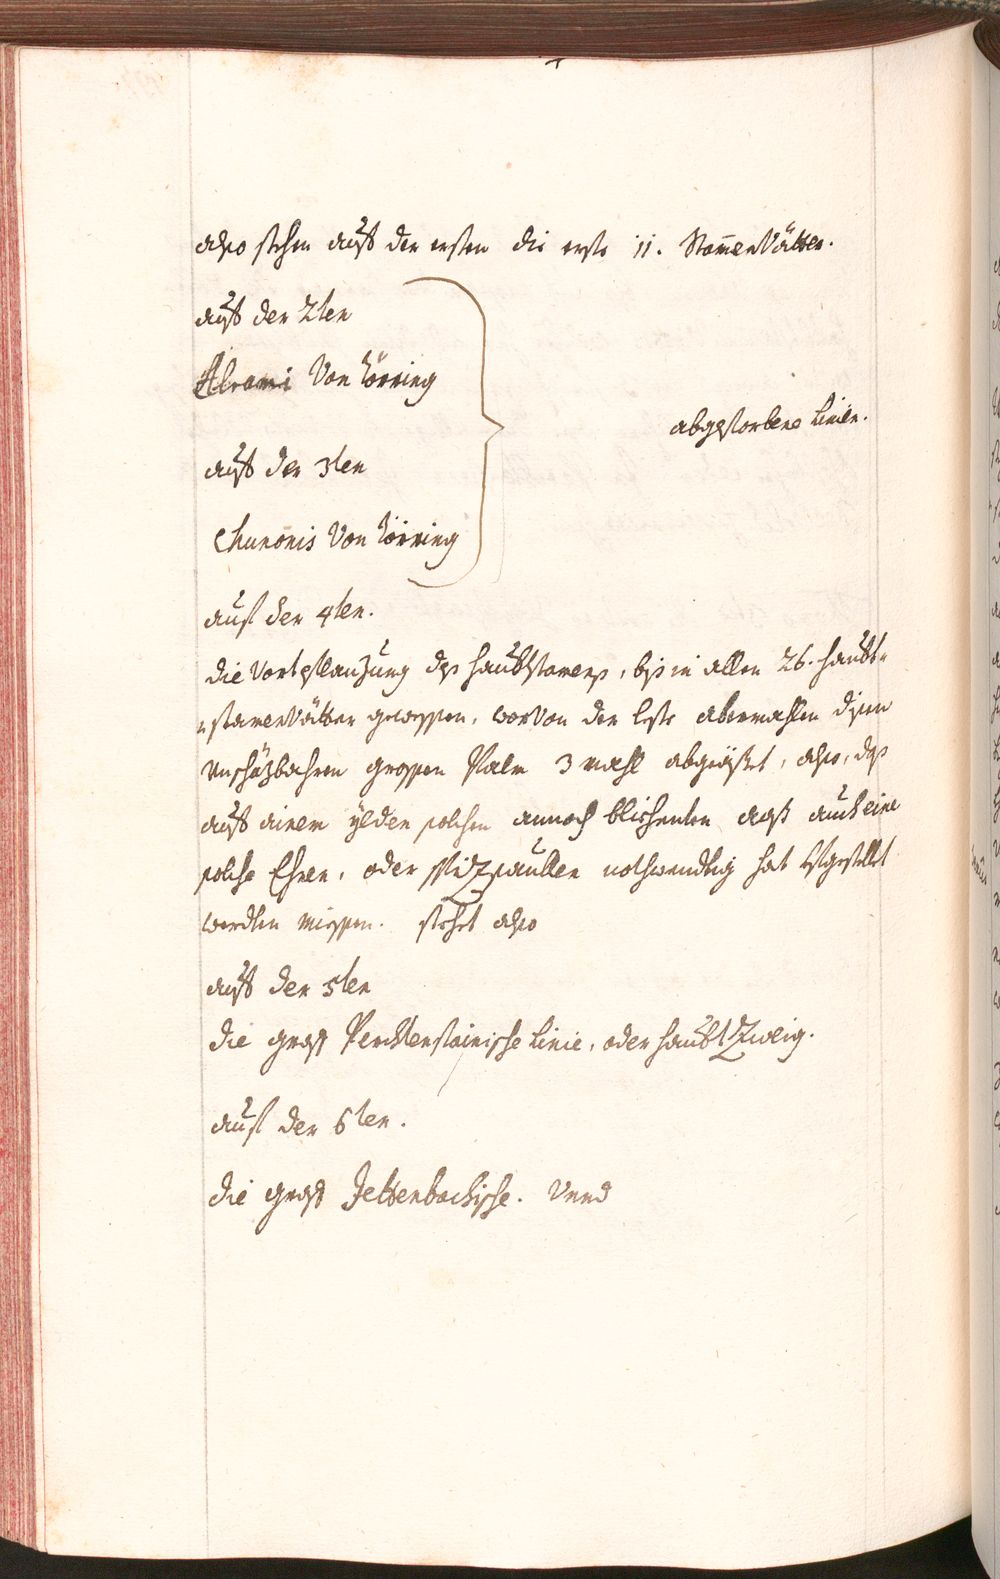 also stehen auff der ersten die erste 11. StammenVätter.
auff der 2ten
Abrami Von Törring
abgestorbene Linien.
auff der 3ten
Chunonis Von Törring
auff der 4ten.
die Vortpflanzung des haubtstamens, biß in allen 26. haubt-
stamenVätter gewessen, worVon der leste abermahlen disen
unschäzbahren grossen Palm 3 mahl abgeässtet, also, das
auff ainem yeden solchen annoch bliehenten asst auch eine
solche Ehren, oder Spizsaullen nothwendig hat gestellet
werdten miessen. stehet also
auff der 5ten
die gross Perchtenstainische Linie, oder haubtZweig.
auff der 6ten.
die gross Jettenbachische. Unnd